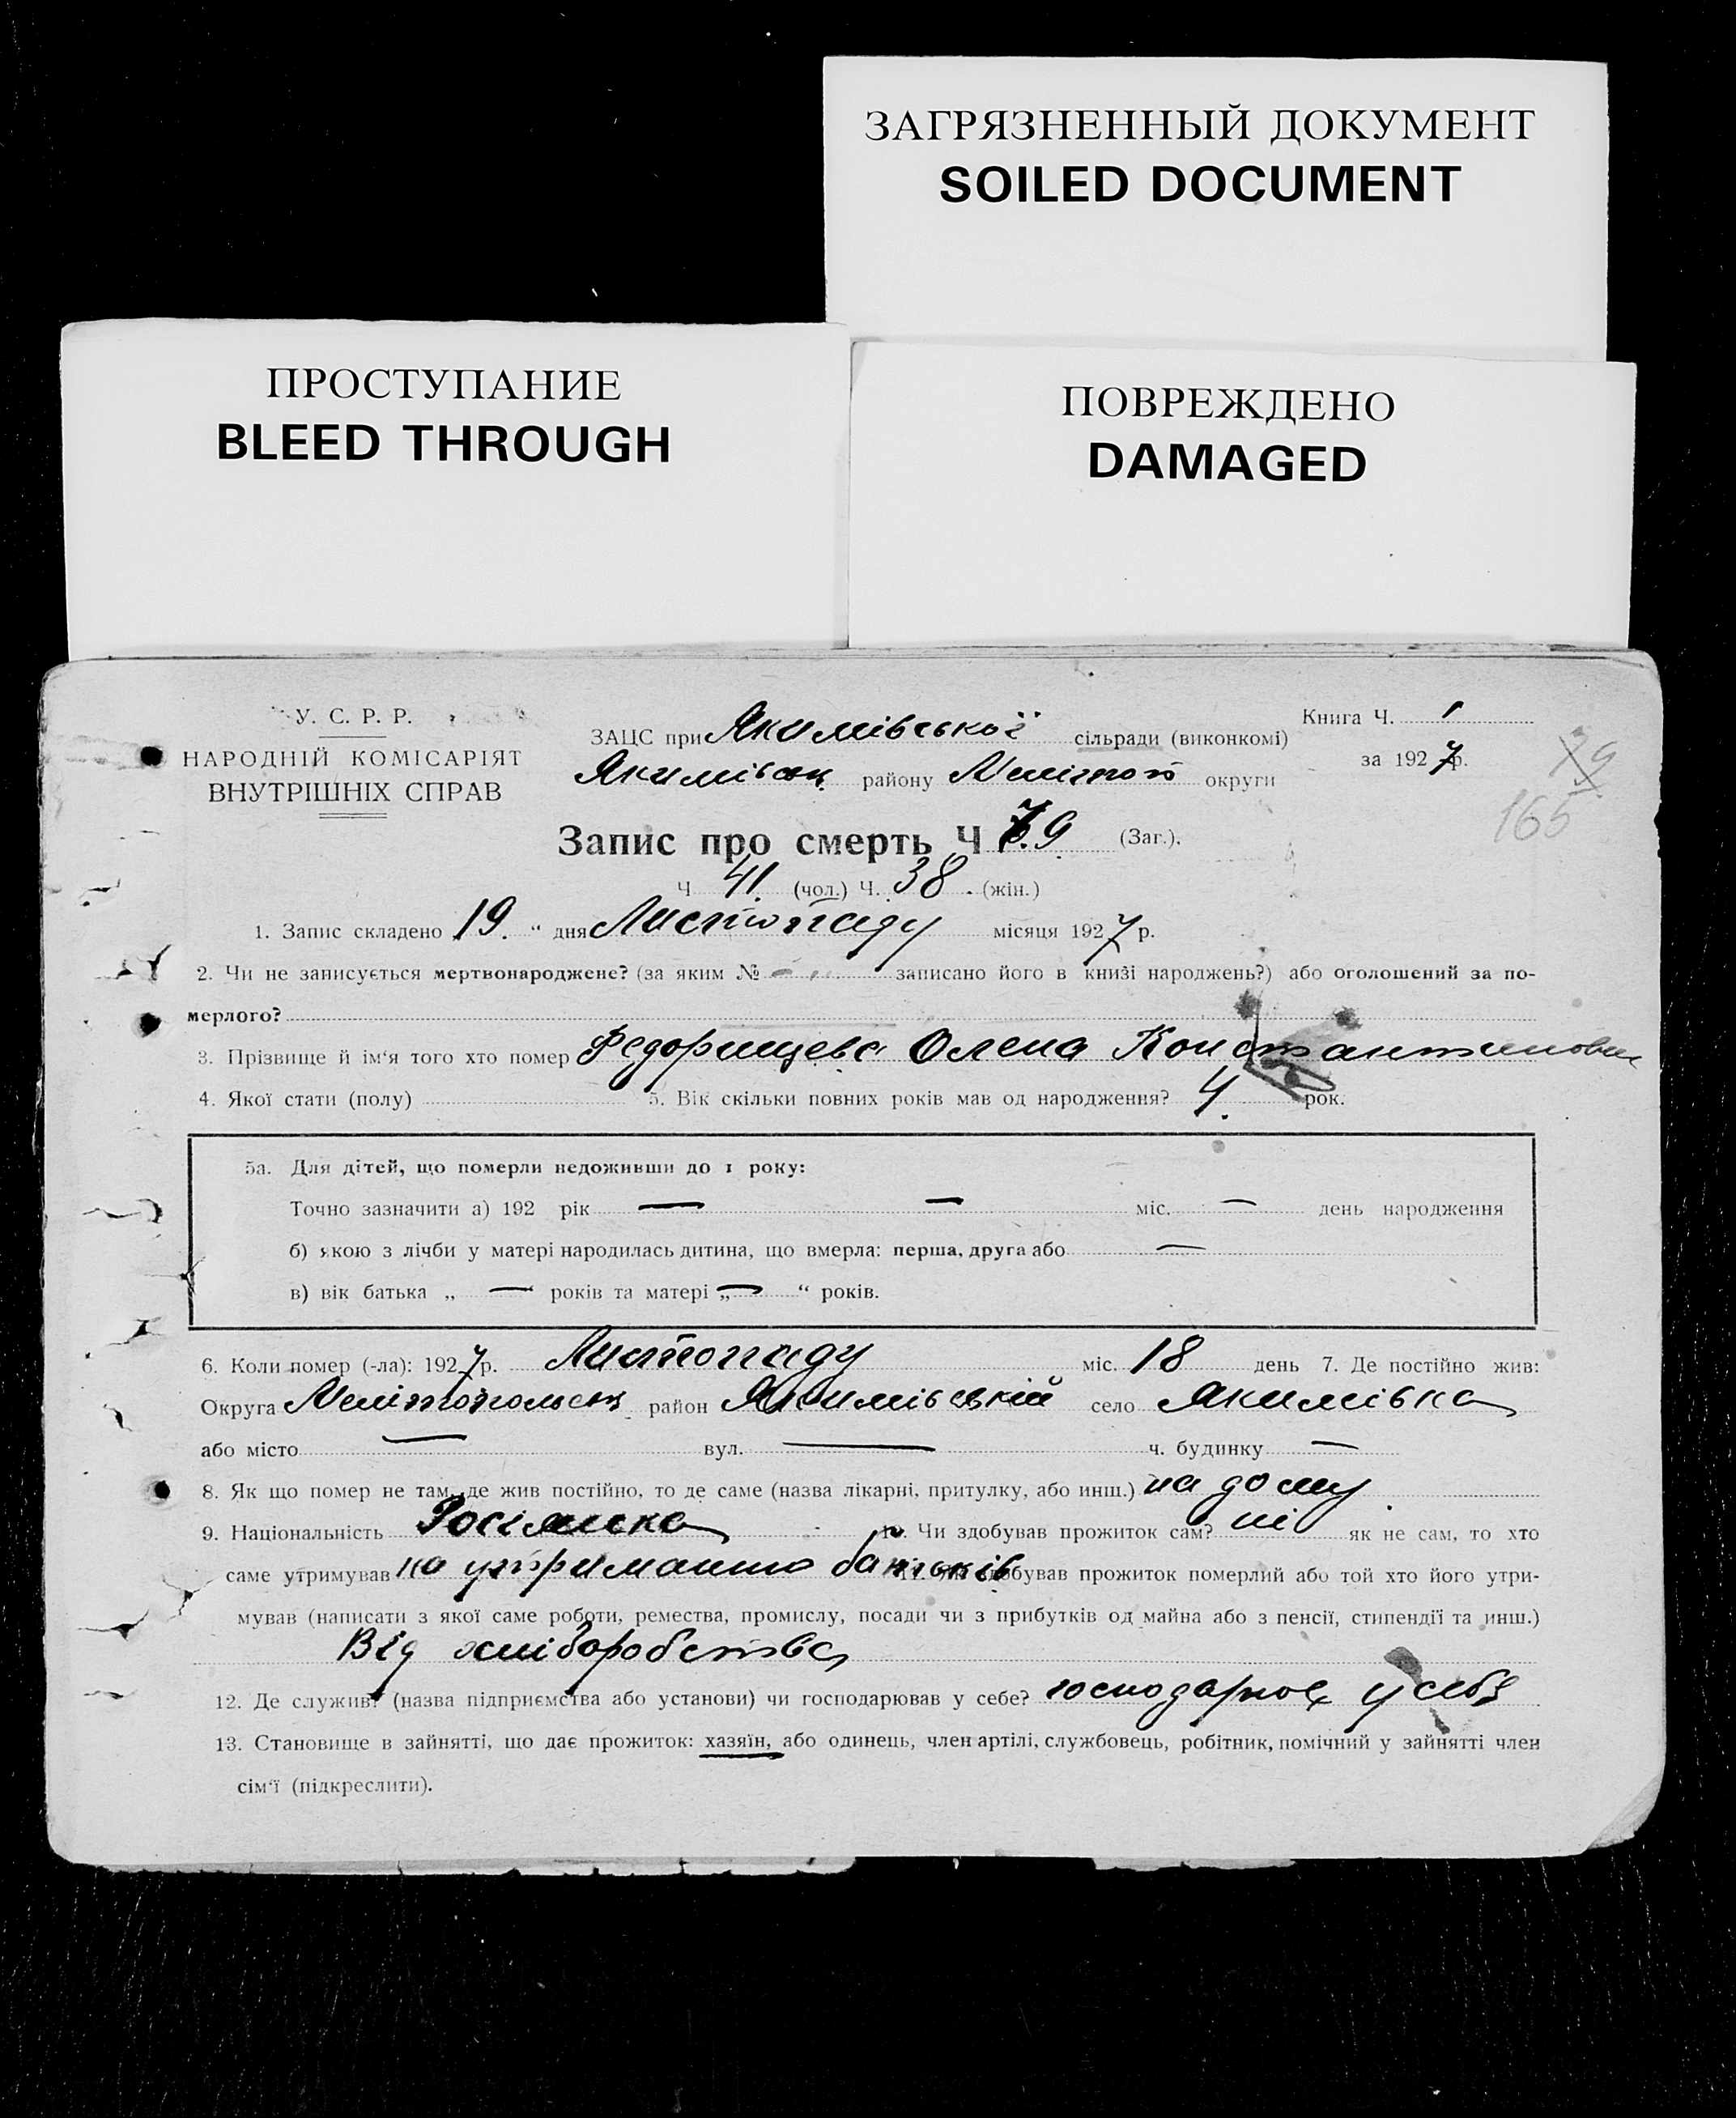 ЗАГРЯЗНЕННЫЙ ДОКУМЕНТ
SOILED DOCUMENT
ПРОСТУПАНИЕ
BLEED THROUGH
ПОВРЕЖДЕНО
DAMAGED
У. С. Р. Р.
НАРОДНІЙ КОМІСАРІЯТ
ВНУТРІШНІХ СПРАВ
ЗАЦС при Якимівської сільради (виконкомі)
Якимівськ району Мелітоп округи
Книга Ч. 1
за 1927 р.
79
165
Запис про смерть Ч 79 (Заг.).
Ч 41 (чол.) Ч. 38 (жін.)
1. Запис складено 19 " дня Листопаду місяця 1927 р.
2. Чи не записується мертвонароджене? (за яким № записано його в книзі народжень?) або оголошений за по-
мерлого?
3. Прізвище й ім'я того хто помер Федорищева Олена Константиновна
4. Якої стати (полу) 5. Вік скільки повних років мав од народження? 4. рок.
5а. Для дітей, що померли недоживши до 1 року:
Точно зазначити а) 192 рік — — міс. — день народження
б) якою з лічби у матері народилась дитина, що вмерла: перша, друга або —
в) вік батька „ — " років та матері „ — " років.
6. Коли помер (-ла): 1927 р. Листопаду міс. 18 день 7. Де постійно жив:
Округа Мелітопольськ район Якимівській село Якимівка
або місто — вул. — ч. будинку —
8. Як що помер не там, де жив постійно, то де саме (назва лікарні, притулку, або инш.) на дому.
9. Національність Росіянка 10. Чи здобував прожиток сам? ні як не сам, то хто
саме утримував на утриманню батьків 11. здобував прожиток померлий або той хто його утри-
мував (написати з якої саме роботи, ремества, промислу, посади чи з прибутків од майна або з пенсії, стипендії та инш.)
Від хліборобства
12. Де служив? (назва підприємства або установи) чи господарював у себе? у себе
13. Становище в зайнятті, що дає прожиток: хазяїн, або одинець, член артілі, службовець, робітник, помічний у зайнятті член
сім'ї (підкреслити).